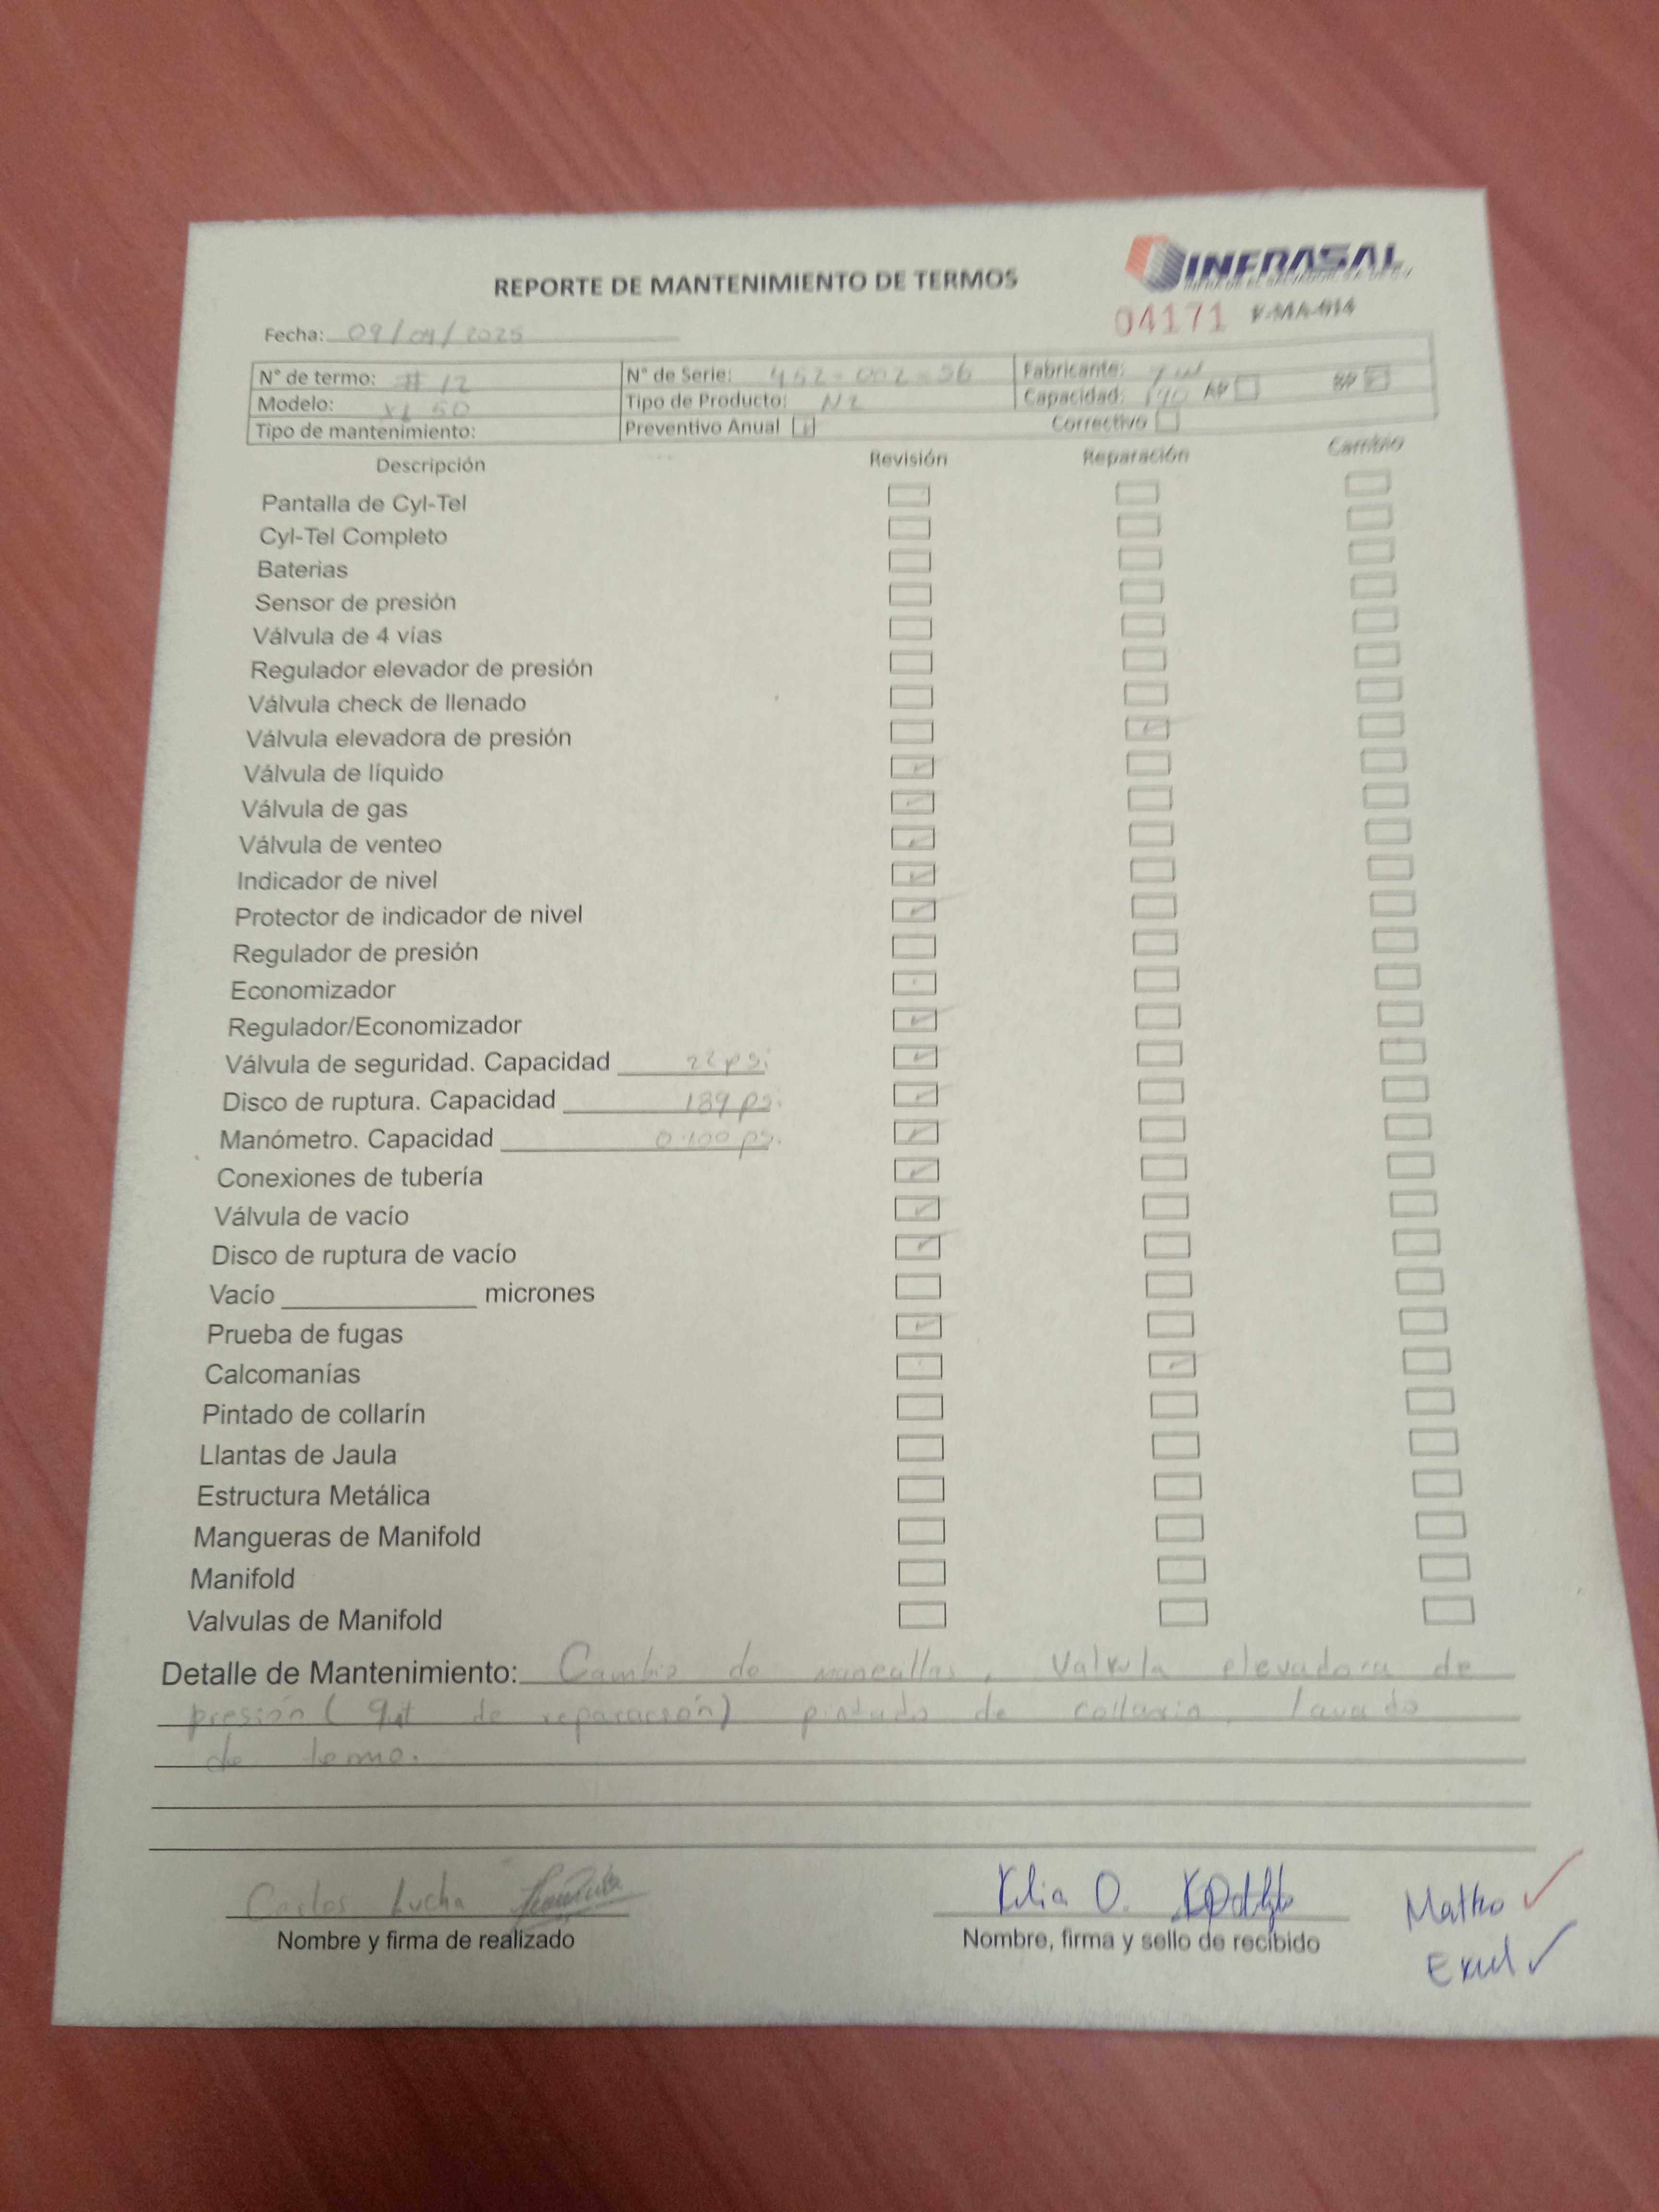 INFRASAL
INFRA DE EL SALVADOR, S.A. DE C.V.
REPORTE DE MANTENIMIENTO DE TERMOS
04171 F-MA-014
Fecha: 09/04/2025
N° de termo: #12 N° de Serie: 452-002-56 Fabricante:
Modelo: XL 50 Tipo de Producto: N2 Capacidad: 190 AP BP
Tipo de mantenimiento: Preventivo Anual Correctivo
Descripción Revisión Reparación Cambio
Pantalla de Cyl-Tel
Cyl-Tel Completo
Baterias
Sensor de presión
Válvula de 4 vías
Regulador elevador de presión
Válvula check de llenado
Válvula elevadora de presión ✓
Válvula de líquido ✓
Válvula de gas ✓
Válvula de venteo ✓
Indicador de nivel ✓
Protector de indicador de nivel ✓
Regulador de presión
Economizador
Regulador/Economizador ✓
Válvula de seguridad. Capacidad 22 psi ✓
Disco de ruptura. Capacidad 189 psi ✓
Manómetro. Capacidad 0-100 psi ✓
Conexiones de tubería ✓
Válvula de vacío ✓
Disco de ruptura de vacío ✓
Vacío ____________ micrones
Prueba de fugas ✓
Calcomanías ✓
Pintado de collarín
Llantas de Jaula
Estructura Metálica
Mangueras de Manifold
Manifold
Valvulas de Manifold
Detalle de Mantenimiento: Cambio de manecillas, Valvula elevadora de
presión (quit de reparación) pintado de collarin, lavado
de termo.
Carlos Lucha Kelia O. Matko ✓
Nombre y firma de realizado Nombre, firma y sello de recibido Exel ✓